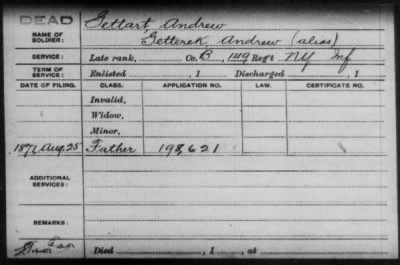 DEAD
NAME OF SOLDIER: Gettart, Andrew
Getterek Andrew (alias)
SERVICE: Late rank, Co. G, 149 Reg't NY Inf
TERM OF SERVICE: Enlisted , 1 Discharged , 1
DATE OF FILING. CLASS. APPLICATION NO. LAW. CERTIFICATE NO.
Invalid,
Widow,
Minor,
1871 Aug. 25 Father 198,621
ADDITIONAL SERVICES:
REMARKS:
Died , 1 , at